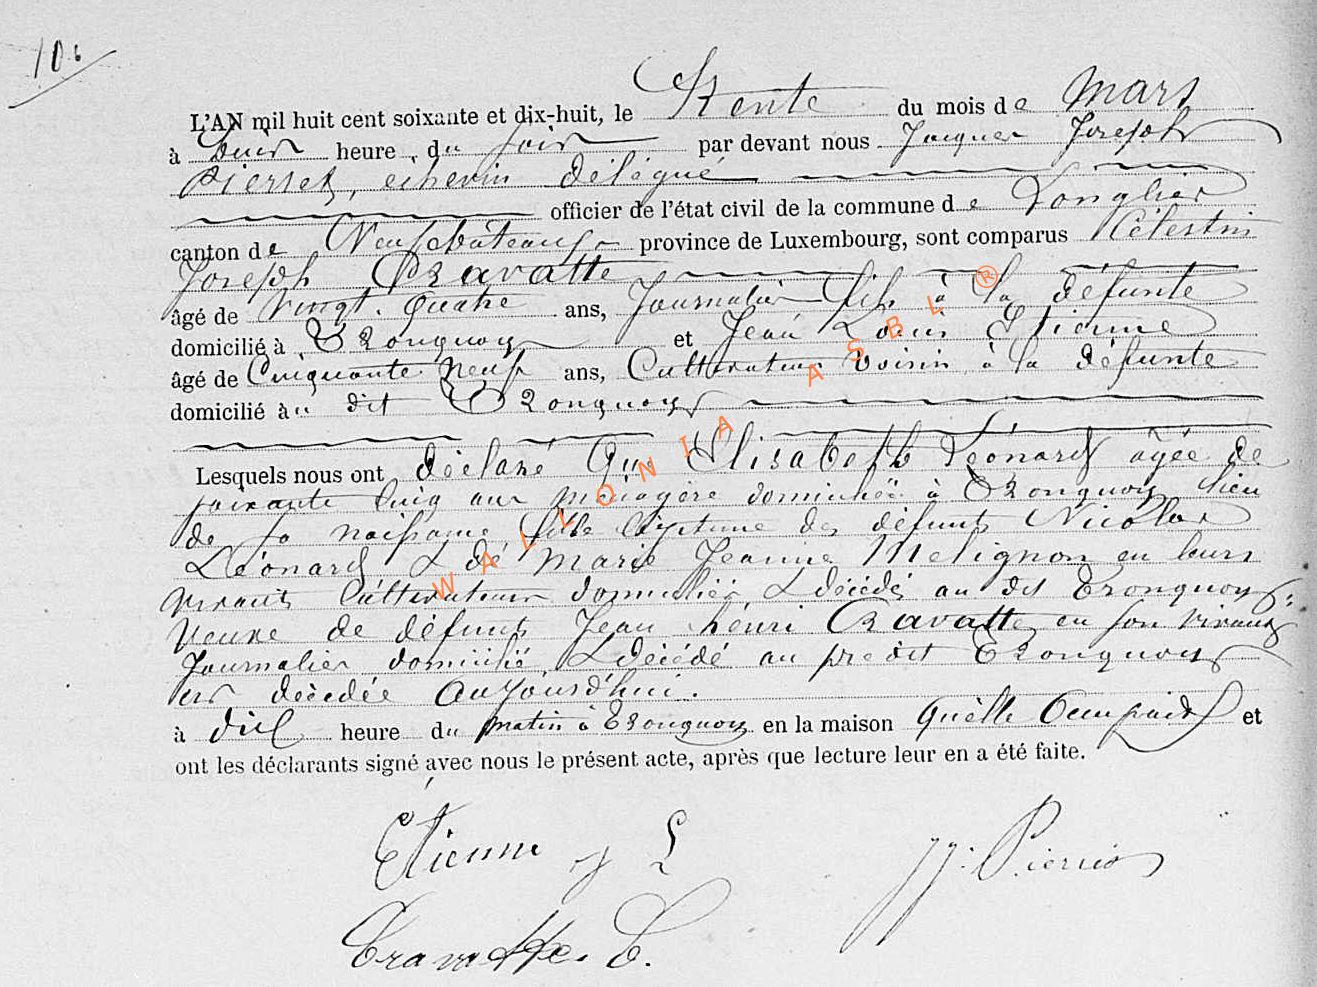 106
L'AN mil huit cent soixante et dix-huit, le Trente du mois de Mars
à heure, du soir par devant nous Jacques Joseph
Pierret, echevin délégué
officier de l'état civil de la commune de Longlier
canton de Neufchâteau province de Luxembourg, sont comparus Célestin
Joseph Cravatte
âgé de Vingt-quatre ans, Journalier fils à la défunte
domicilié à Tronquoy et Jean Louis Etienne
âgé de Cinquante Neuf ans, Cultivateur voisin à la défunte
domicilié au dit Tronquoy
Lesquels nous ont déclaré Que Elisabeth Léonard âgée de
soixante cinq ans ménagère domiciliée à Tronquoy lieu
de sa naissance fille légitime des défunts Nicolas
Léonard & de Marie Jeanne Melignon en leurs
vivants Cultivateurs domiciliés & décédés au dit Tronquoy
Veuve de défunt Jean henri Cravatte en son vivant
Journalier domicilié & décédé au predit Tronquoy
est décédée Aujourd'hui.
à dix heure du matin à Tronquoy en la maison Quelle Occupait et
ont les déclarants signé avec nous le présent acte, après que lecture leur en a été faite.
Etienne J L
J J. Pierret
Cravatte. C.
WALLONIA ASBL ®